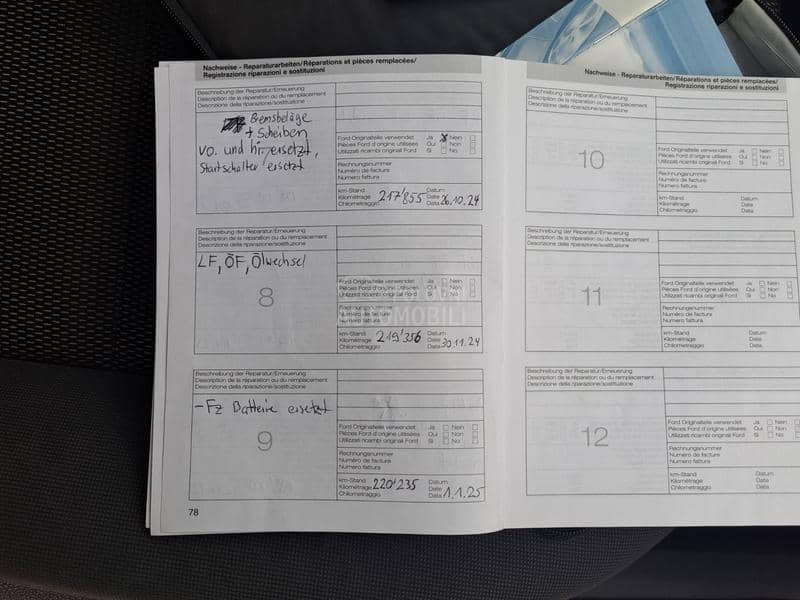 Nachweise - Reparaturarbeiten/Réparations et pièces remplacées/
Registrazione riparazioni e sostituzioni
Beschreibung der Reparatur/Erneuerung
Description de la réparation ou du remplacement
Descrizione della riparazione/sostituzione
Bremsbeläge
+ Scheiben
vo. und hi. ersetzt,
Startschalter ersetzt
Ford Originalteile verwendet Ja Nein
Pièces Ford d'origine utilisées Oui Non
Utilizzati ricambi original Ford Sì No
Rechnungsnummer
Numéro de facture
Numero fattura
km-Stand Datum
Kilométrage 217'855 Date 26.10.24
Chilometraggio Data
Beschreibung der Reparatur/Erneuerung
Description de la réparation ou du remplacement
Descrizione della riparazione/sostituzione
LF, ÖF, Ölwechsel
8
Ford Originalteile verwendet Ja Nein
Pièces Ford d'origine utilisées Oui Non
Utilizzati ricambi original Ford Sì No
Rechnungsnummer
Numéro de facture
Numero fattura
km-Stand Datum
Kilométrage 219'356 Date 30.11.24
Chilometraggio Data
Beschreibung der Reparatur/Erneuerung
Description de la réparation ou du remplacement
Descrizione della riparazione/sostituzione
- Fz Batterie ersetzt
9
Ford Originalteile verwendet Ja Nein
Pièces Ford d'origine utilisées Oui Non
Utilizzati ricambi original Ford Sì No
Rechnungsnummer
Numéro de facture
Numero fattura
km-Stand Datum
Kilométrage 220'235 Date 1.1.25
Chilometraggio Data
78
Nachweise - Reparaturarbeiten/Réparations et pièces remplacées/
Registrazione riparazioni e sostituzioni
Beschreibung der Reparatur/Erneuerung
Description de la réparation ou du remplacement
Descrizione della riparazione/sostituzione
10
Ford Originalteile verwendet Ja Nein
Pièces Ford d'origine utilisées Oui Non
Utilizzati ricambi original Ford Sì No
Rechnungsnummer
Numéro de facture
Numero fattura
km-Stand Datum
Kilométrage Date
Chilometraggio Data
Beschreibung der Reparatur/Erneuerung
Description de la réparation ou du remplacement
Descrizione della riparazione/sostituzione
11
Ford Originalteile verwendet Ja Nein
Pièces Ford d'origine utilisées Oui Non
Utilizzati ricambi original Ford Sì No
Rechnungsnummer
Numéro de facture
Numero fattura
km-Stand Datum
Kilométrage Date
Chilometraggio Data
Beschreibung der Reparatur/Erneuerung
Description de la réparation ou du remplacement
Descrizione della riparazione/sostituzione
12
Ford Originalteile verwendet Ja Nein
Pièces Ford d'origine utilisées Oui Non
Utilizzati ricambi original Ford Sì No
Rechnungsnummer
Numéro de facture
Numero fattura
km-Stand Datum
Kilométrage Date
Chilometraggio Data